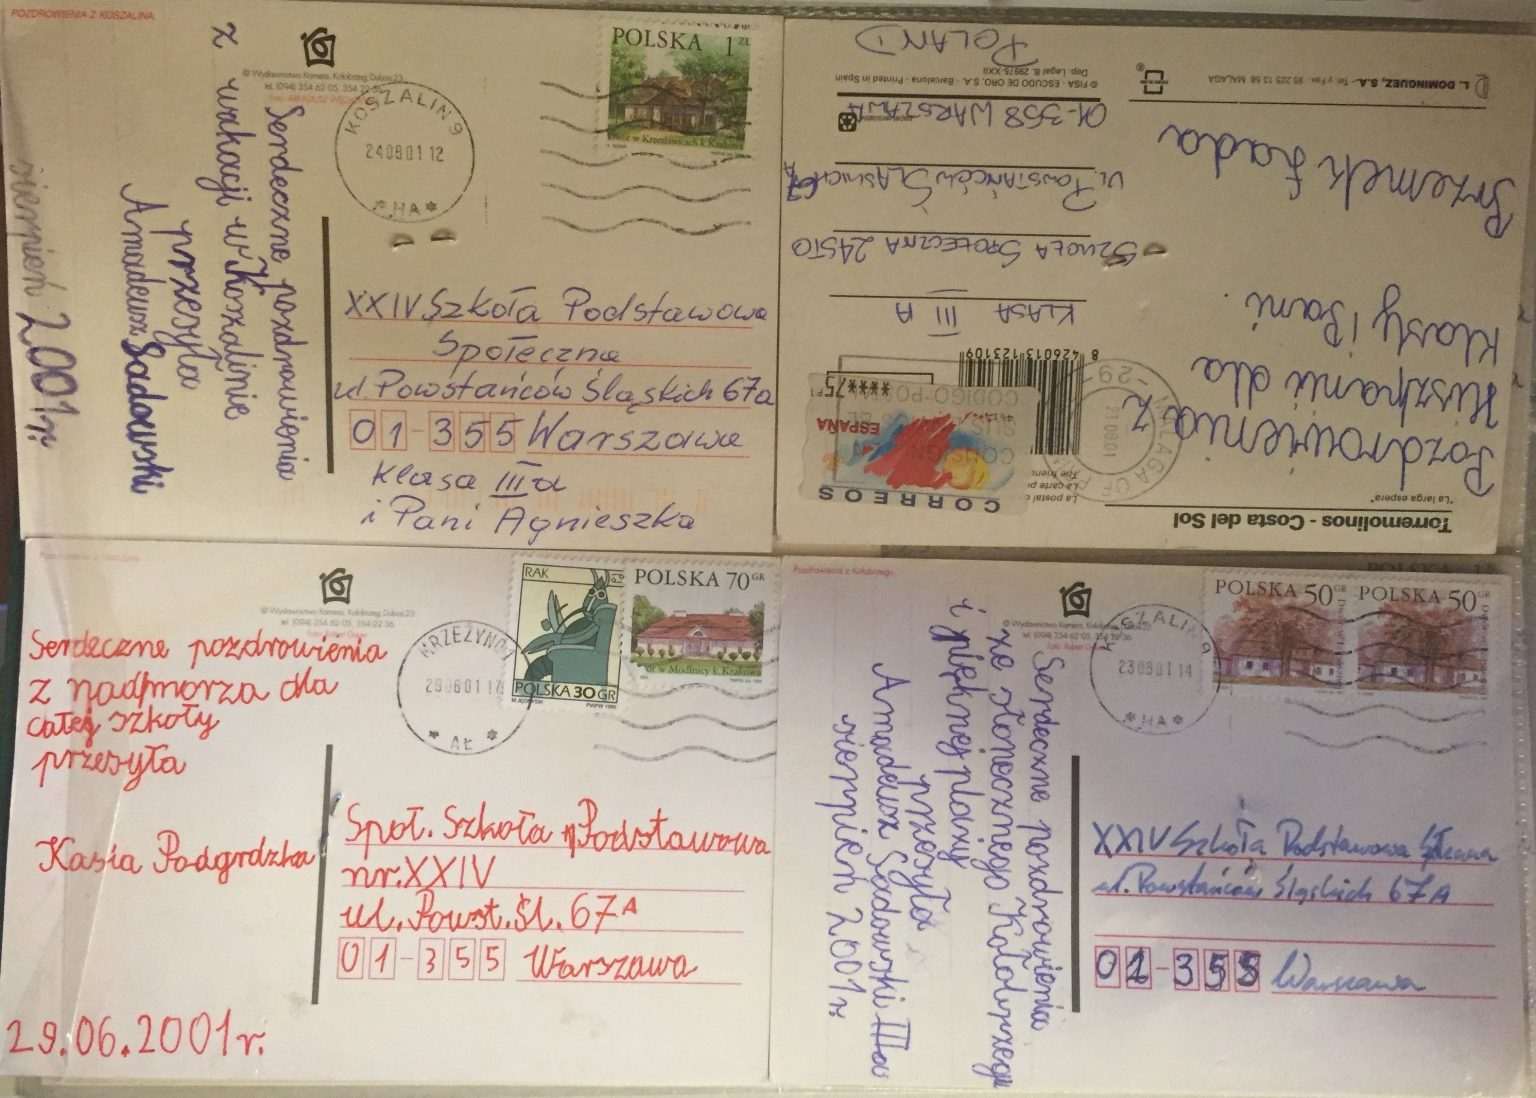 POZDROWIENIA Z KOSZALINA
© Wydawnictwo Kamera, Kołobrzeg, Dubois 23
tel. (094) 354 62 05, 354 22 36
POLSKA 1 ZŁ
Dwór w Krzesławicach k. Krakowa
KOSZALIN 9
240801 12
* HA *
Serdeczne pozdrowienia
z wakacji w Koszalinie
przesyła
Amadeusz Sadowski
sierpień 2001r.
XXIV Szkoła Podstawowa
Społeczna
ul. Powstańców Śląskich 67a
01-355 Warszawa
klasa IIIa
i Pani Agnieszka
Torremolinos - Costa del Sol
"La larga espera"
Pozdrowienia z
Hiszpanii dla
klasy i Pani
Przemek Łada
L. DOMINGUEZ, S.A. - Tel y Fax. 95 225 13 58 MALAGA
CORREOS
ESPAÑA
****75
8 426013 123109
MALAGA
210801
-29-
KLASA III A
SZKOŁA SPOŁECZNA 24STO
UL. POWSTAŃCÓW ŚLĄSKICH 67A
01-358 WARSZAWA
© FISA - ESCUDO DE ORO, S.A. - Barcelona - Printed in Spain
Dep. Legal B. 29975-XXII
POLAND
© Wydawnictwo Kamera, Kołobrzeg, Dubois 23
tel. (094) 354 62 05, 354 22 36
RAK
POLSKA 30 GR
PWPW 1996
POLSKA 70 GR
Dwór w Modlnicy k. Krakowa
MRZEŻYNO
290601 17
* AŁ *
Serdeczne pozdrowienia
z nadmorza dla
całej szkoły
przesyła
Kasia Podgrdzka
29.06.2001r.
Społ. Szkoła Podstawowa
nr. XXIV
ul. Powst. Śl. 67A
01-355 Warszawa
Pozdrowienia z Kołobrzegu
© Wydawnictwo Kamera, Kołobrzeg, Dubois 23
tel. (094) 354 62 05, 354 22 36
POLSKA 50 GR
POLSKA 50 GR
KOSZALIN 9
230801 14
* HA *
Serdeczne pozdrowienia
ze słonecznego Kołobrzegu
i pięknej plaży
przesyła
Amadeusz Sadowski IIIa
sierpień 2001r.
XXIV Szkoła Podstawowa
ul. Powstańców Śląskich 67A
01-355 Warszawa